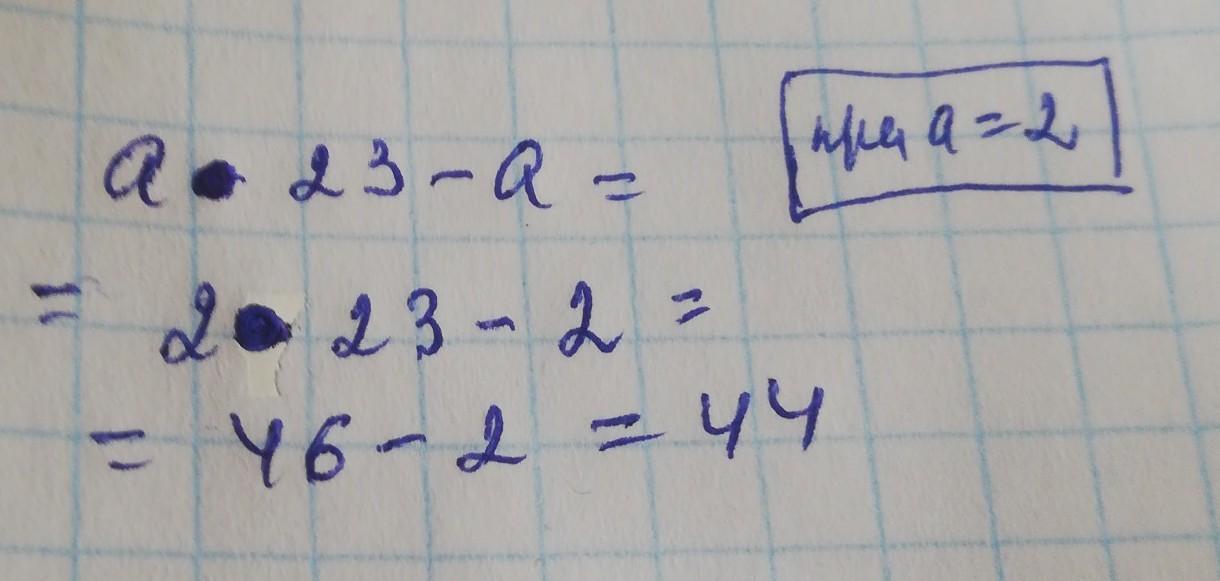 a • 23 - a =
при a = 2
= 2 • 23 - 2 =
= 46 - 2 = 44